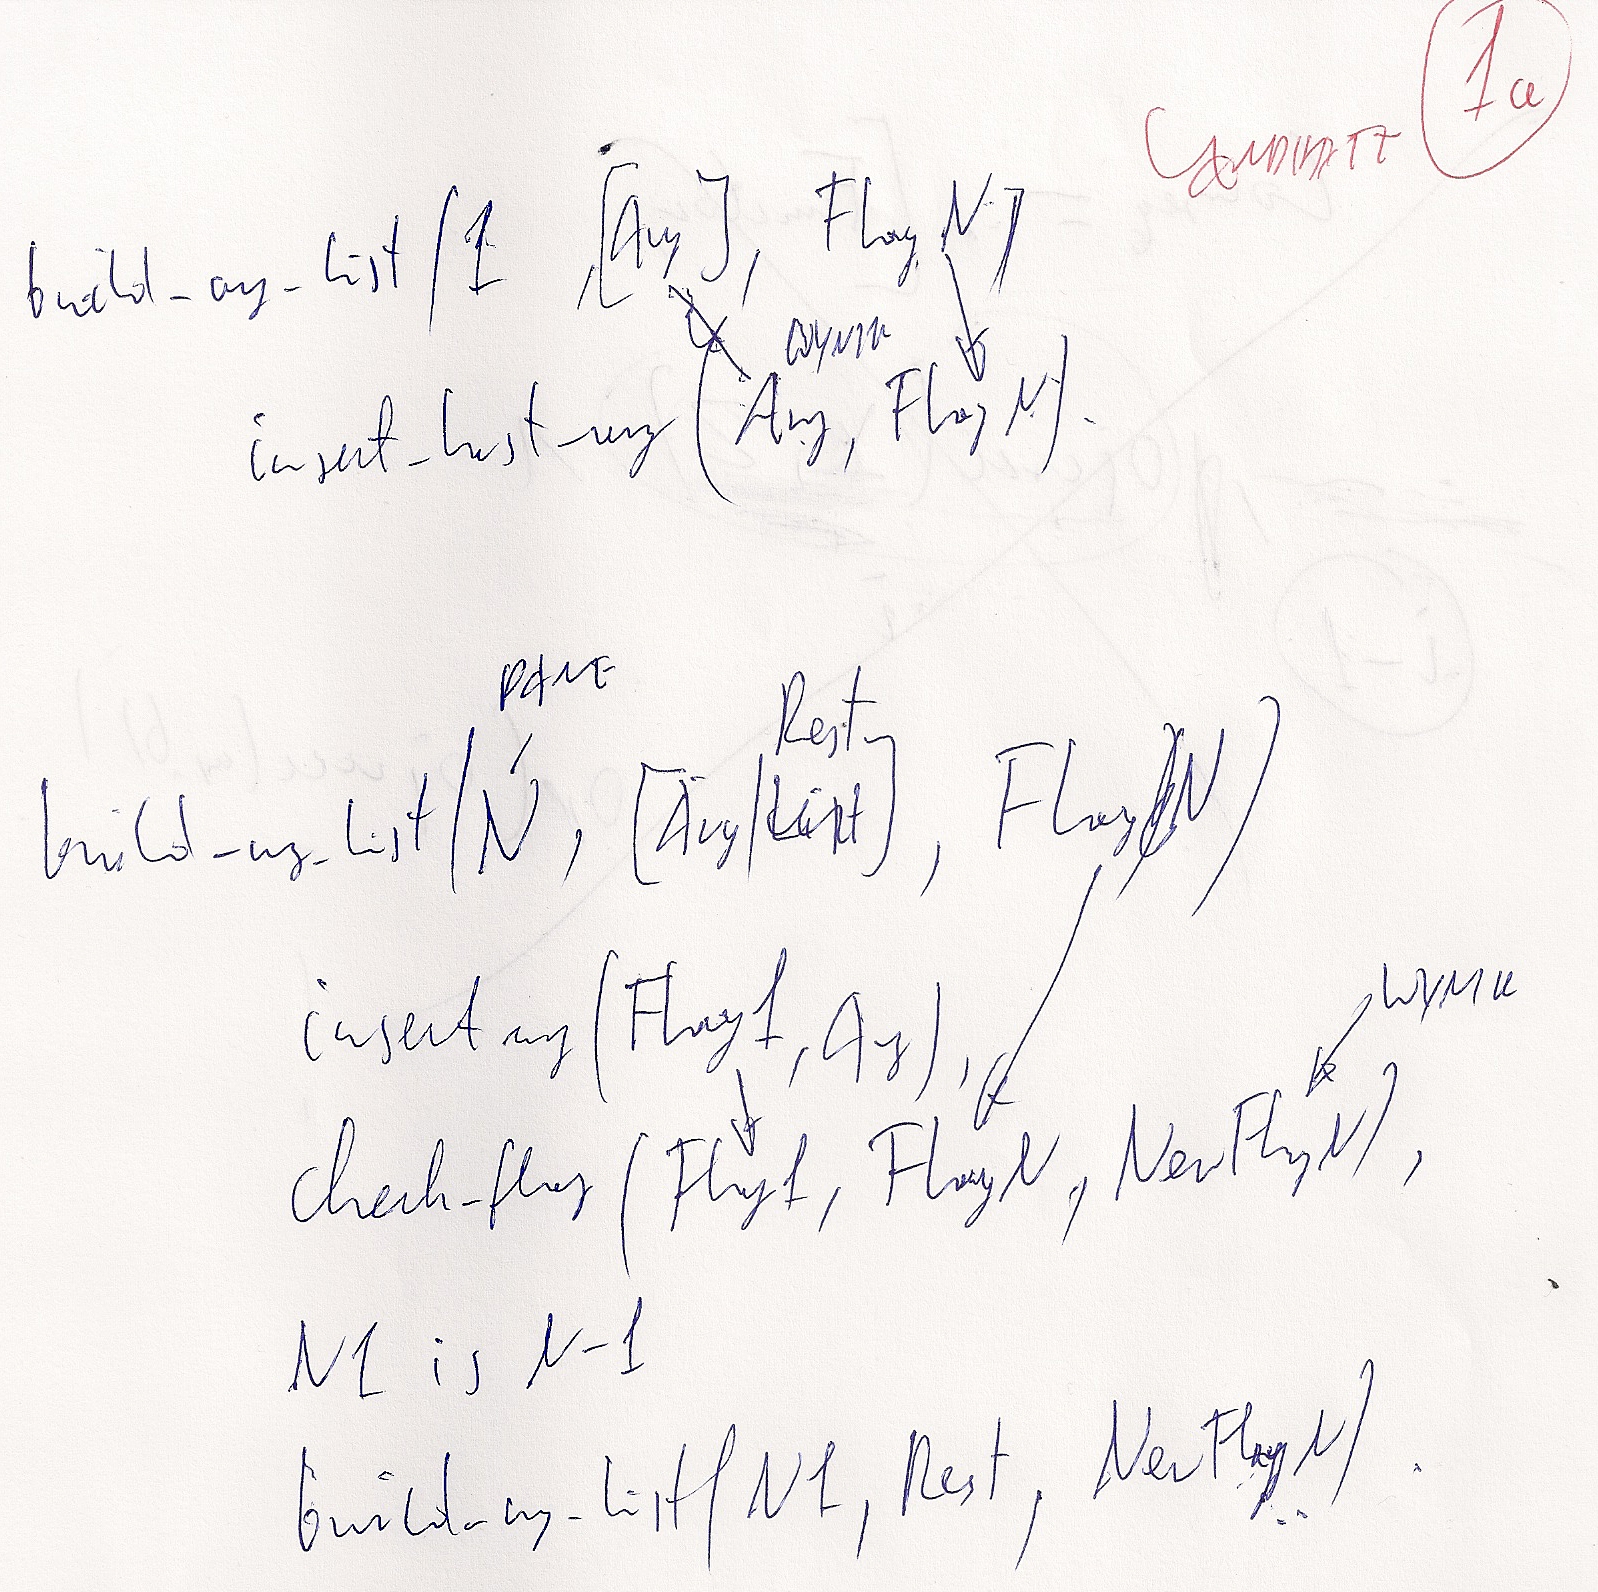 1a
build_arg_list(1 ,[Arg], FlagN)
WYNIK
insert_last_arg(Arg, FlagN).
DANE
Rest
build_arg_list(N, [Arg|List], FlagN)
WYNIK
insert arg(Flag1, Arg),
check_flag(Flag1, FlagN, NewFlagN),
N1 is N-1
build_arg_list(N1, Rest, NewFlagN).